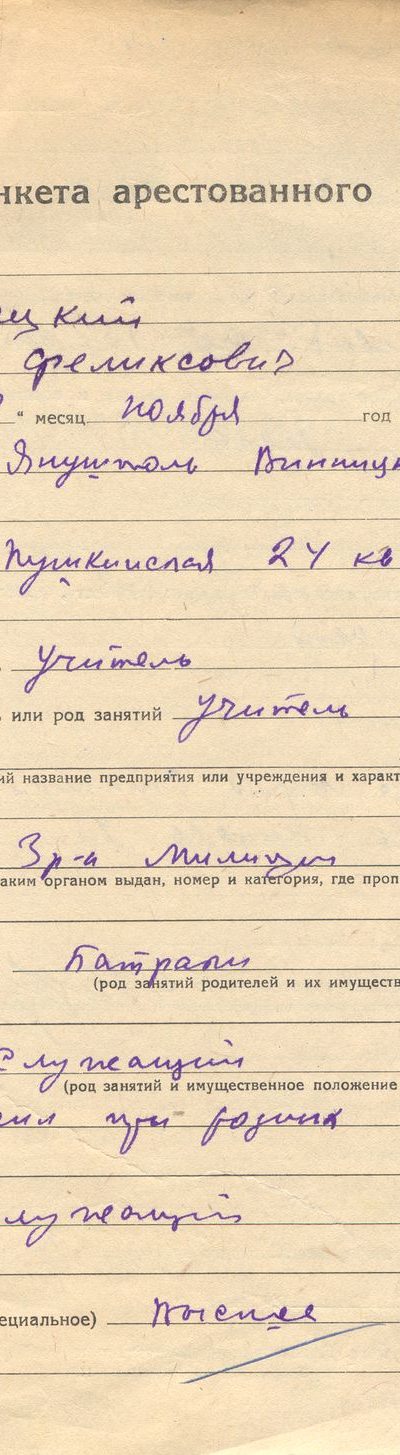 нкета арестованного
цкий
Феликсович
“ месяц ноября год
Янушполь Винницк
Пушкинская 24 кв
учитель
или род занятий учитель
ий название предприятия или учреждения и характ
3 р-н Милиции
аким органом выдан, номер и категория, где проп
Батраки
(род занятий родителей и их имуществ
Служащий
(род занятий и имущественное положение
при родных
лужащий
ециальное) Высшее